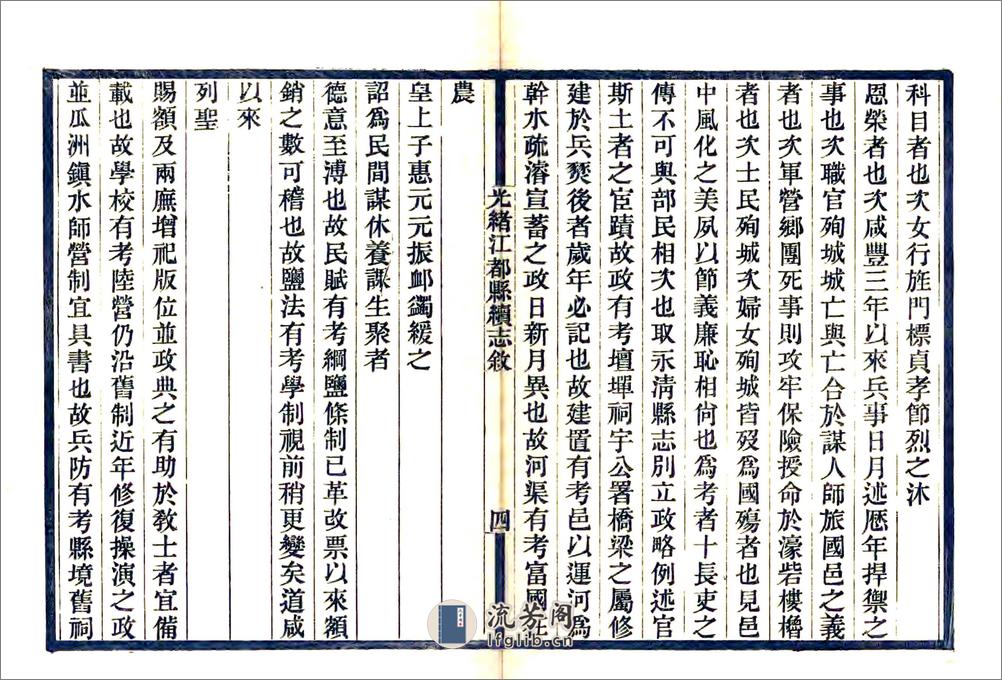 科目者也次女行旌門標貞孝節烈之沐
恩榮者也次咸豐三年以來兵事日月述厯年捍禦之
事也次職官殉城城亡與亡合於謀人師旅國邑之義
者也次軍營鄉團死事則攻牢保險授命於濠砦樓櫓
者也次士民殉城次婦女殉城皆歿爲國殤者也見邑
中風化之美夙以節義廉恥相尙也爲考者十長吏之
傳不可與部民相次也取永淸縣志別立政略例述官
斯土者之宦蹟故政有考壇墠祠宇公署橋梁之屬修
建於兵燹後者歲年必記也故建置有考邑以運河爲
幹水疏濬宣蓄之政日新月異也故河渠有考富國在
光緒江都縣續志敘
四
農
皇上子惠元元振卹蠲緩之
詔爲民間謀休養謀生聚者
德意至溥也故民賦有考綱鹽條制已革改票以來額
銷之數可稽也故鹽法有考學制視前稍更變矣道咸
以來
列聖
賜額及兩廡增祀版位並政典之有助於敎士者宜備
載也故學校有考陸營仍沿舊制近年修復操演之政
並瓜洲鎭水師營制宜具書也故兵防有考縣境舊祠
流芳阁
lfglib.cn